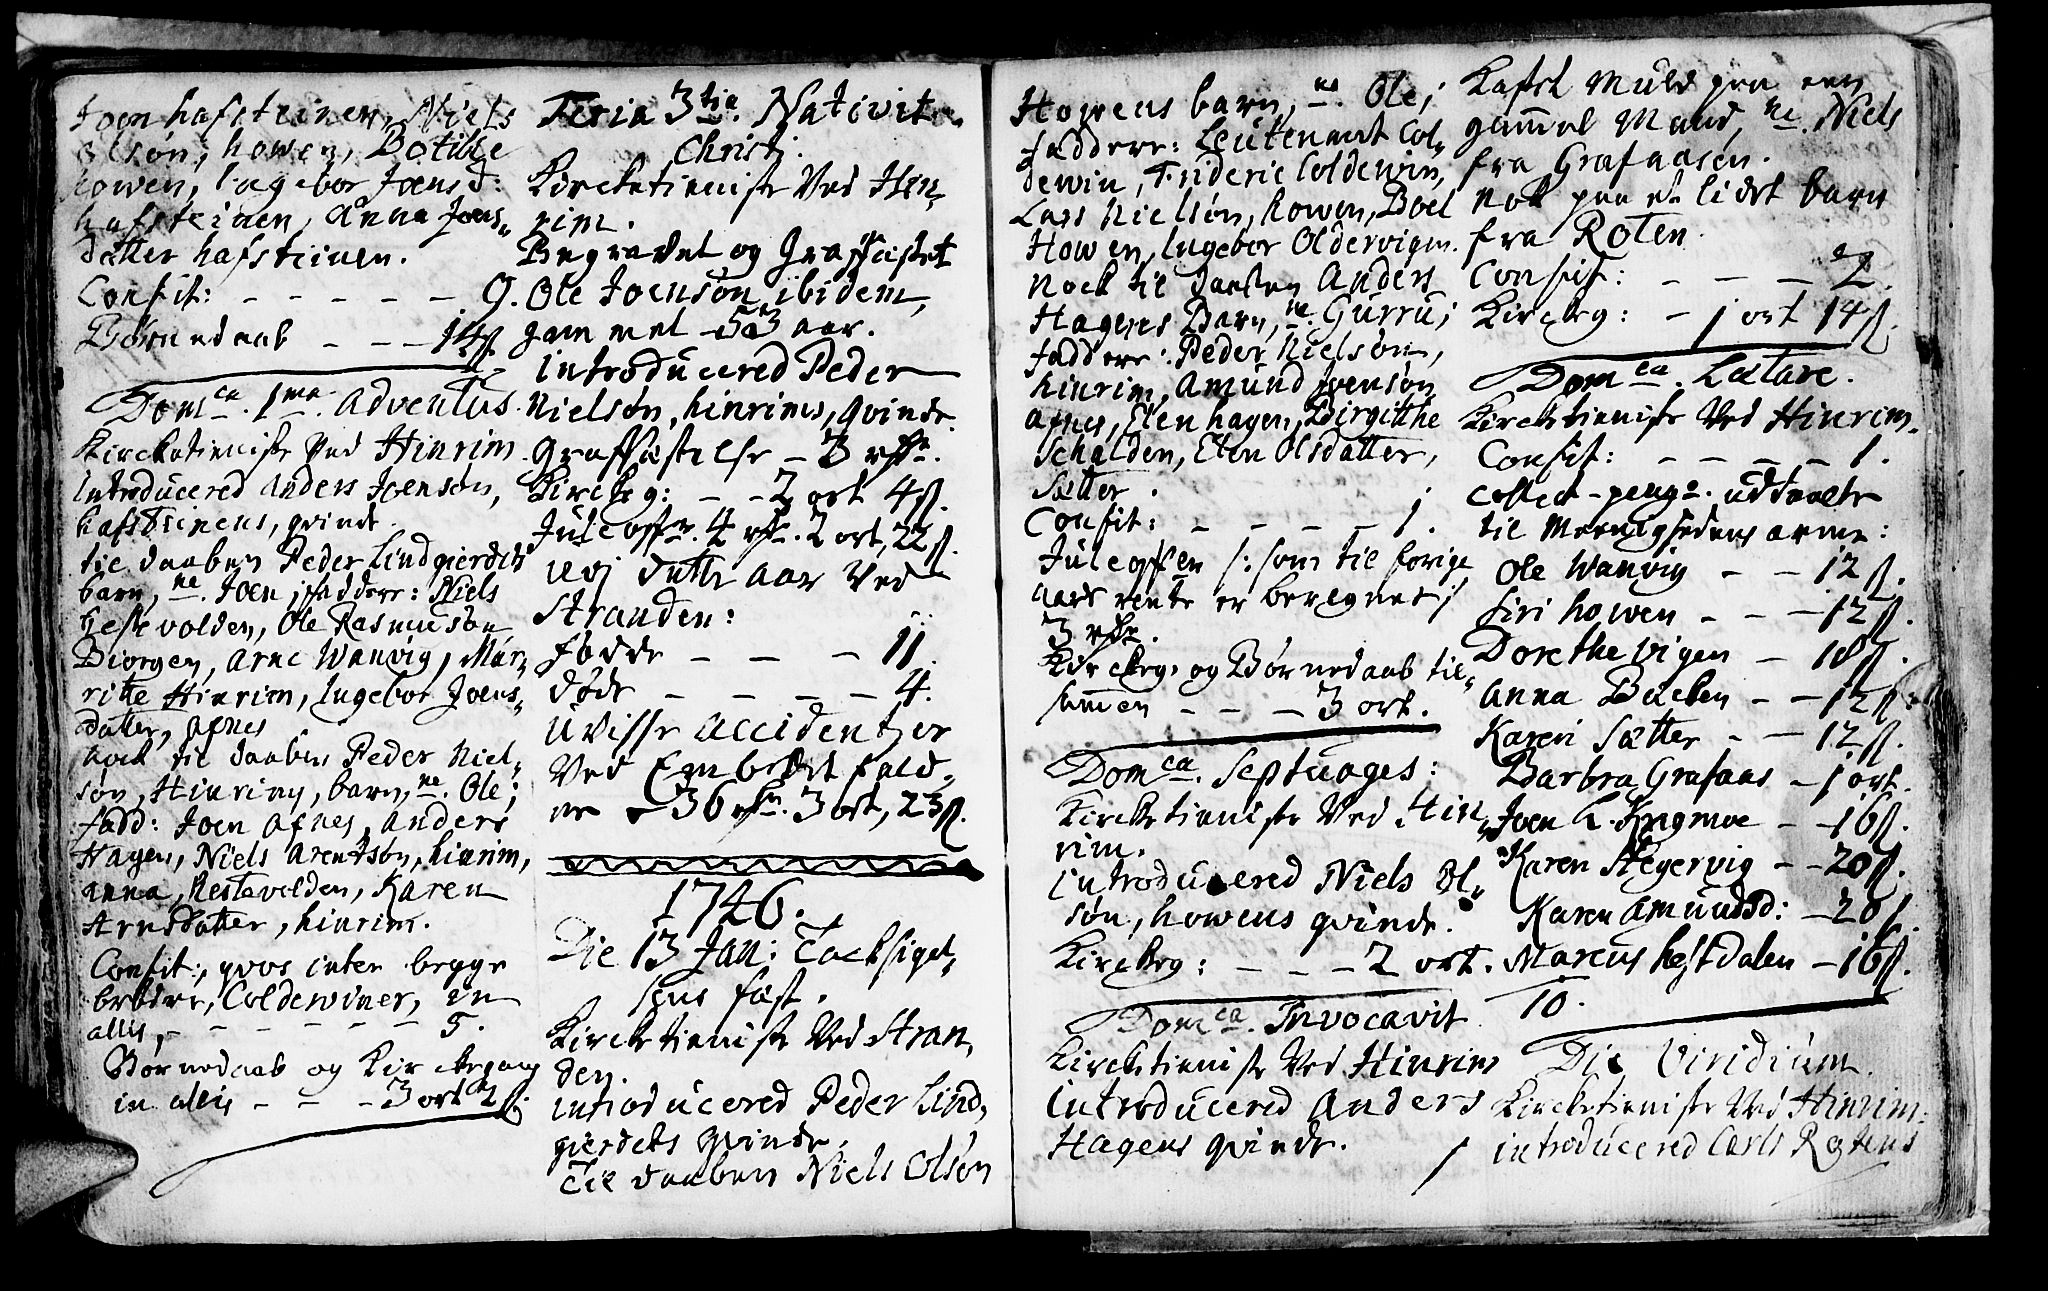 Joen hafsteinen, Niels
olsøn, howen, Botille
howen, Ingebor Joensd:
hafsteinen, Anna Joens„
datter hafsteinen.
Confit: – – – – – 9.
Børnedaab – – – 14ß
Domca. 1ma. Adventus.
Kircketieniste Ved Hinrim.
introducered Anders Joensøn,
hafsteinens, qvinde.
til daaben Peder Lindgierdets
barn, ne. Joen; faddere: Niels
hestevolden, Ole Rasmusøn
Biorgen, Arne Wanvig, Mar„
ritte Hinrim, Ingebor Joens„
datter, Afnes
nock til daaben Peder Niel„
søn, Hinrims, barn, ne. Ole;
fadd: Joen Afnes, Anders
Hagen, Niels Arentsøn, hinrim,
anna, Hestevolden, Karen
Arnsdatter, hinrim.
Confit:, qvos inter begge
brødre, Coldewiner, in
allis, – – – – – – 5.
Børnedaab og Kirckegang
in allis – – – 3 ort 2ß.
Feria 3tia. Nativit.
Christi.
Kircketieniste Ved Hin„
rim.
Begravet og Graffæstet
Ole Joensøn ibidem,
gammel 53 aar.
introducered Peder
Nielsøn, hinrims, qvinde.
Graffæstelse – 3 rdr.
Kirckeg: – – 2 ort 4ß.
Juleoffer. 4 rdr. 2 ort, 22ß.
udj dette Aar Ved
Stranden:
fødde – – – 11.
døde – – – – 4.
Uvisse Accidentier
Ved Embedet falde„
ne – 36 rdr. 3 ort, 23ß.
1746.
Die 13 Jan: Tacksigel„
sens fæst.
Kircketieniste Ved Stran„
den.
introducered Peder Lind„
gierdets qvinde.
Til daaben Niels Olsøn
Howens barn, ne. Ole;
faddere: Leutenant Col„
dewin, Frideric Coldewin,
Lars Nielsøn, howen, Boel
Howen, Ingebor Oldervigen.
Nock til daaben Anders
Hagens Barn, ne. Gurru;
faddere: Peder Nielsøn,
hinrim, Amund Joensøn
Afnes, Elen hagen, Birgitthe
Schalden, Elen Olsdatter,
Sætter.
Confit: – – – – 1.
Juleoffen /: som til forige
aars rente er beregnet :/
3 rdr.
Kirckeg. og Børnedaab til„
sammen – – – 3 ort.
Domca. Septuages:
Kircketieniste Ved Hin„
rim.
introducered Niels Ol„
søn, howens qvinde.
Kirckeg: – – – 2 ort.
Domca. Invocavit
Kircketieniste Ved Hinrim
introducered Anders
Hagens qvinde.
Kastet Muld paa een
gammel Mand, ne. Niels
fra Grafaasen.
nok paa et lidet barn
fra Roten.
Confit: – – – 2.
Kirckeg: – 1 ort 14ß.
Domca. Lætare.
Kircketieniste Ved Hinrim.
Confit: – – – – 1.
Collect-penge. uddaalte
til Meenighedens arme:
Ole Wanvig – – 12ß.
Siri howen – – – 12ß.
Dorethe vigen – 18ß.
Anna Backen – – 12ß.
Karen Sætter – – 12ß.
Barbra Grafaas – 1 ort.
Joen L. Kragmoe – – 16ß.
Karen Stegervig – – 20ß.
Karen Amundsd: – 20ß.
Marcus hestdalen – 16ß.
10.
Die Viridium.
Kircketieniste Ved Hinrim.
introducered Carls Rotens